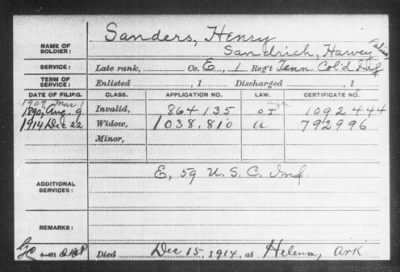 Sanders, Henry
NAME OF SOLDIER: Sandrich, Harvey alias
SERVICE: Late rank, Co. E, 1 Reg't Tenn. Col'd Inf
TERM OF SERVICE: Enlisted , 1 Discharged , 1
DATE OF FILING. CLASS. APPLICATION NO. LAW. CERTIFICATE NO.
1907 Mar 1
1890, Aug. 9 Invalid, 864135 1092444
1914 Dec 22 Widow, 1038,810 792996
Minor,
ADDITIONAL SERVICES: E, 59 U. S. C. Inf.
REMARKS:
Died Dec 15, 1914, at Helena, Ark.